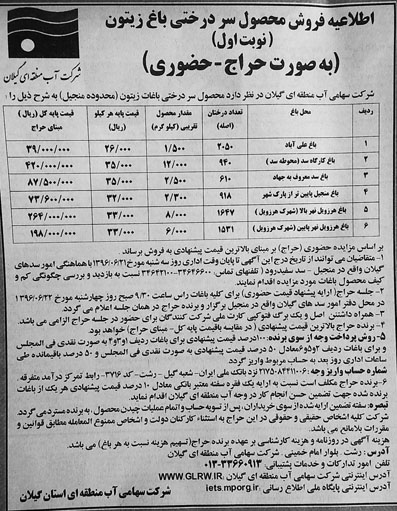 اطلاعیه فروش محصول سر درختی باغ زیتون
(نوبت اول)
(به صورت حراج - حضوری)
شرکت آب منطقه ای گیلان
شرکت سهامی آب منطقه ای گیلان در نظر دارد محصول سر درختی باغات زیتون (محدوده منجیل) به شرح ذیل را:
ردیف محل باغ تعداد درختان (اصله) مقدار محصول تقریبی (کیلو گرم) قیمت پایه هر کیلو (ریال) قیمت پایه کل (ریال) مبنای حراج
۱ باغ علی آباد ۲۰۵۰ ۱/۵۰۰ ۲۶/۰۰۰ ۳۹/۰۰۰/۰۰۰
۲ باغ کارگاه سد (محوطه سد) ۹۴۰ ۱۲/۰۰۰ ۳۵/۰۰۰ ۴۲۰/۰۰۰/۰۰۰
۳ باغ سد معروف به جهاد ۶۱۰ ۲/۵۰۰ ۳۵/۰۰۰ ۸۷/۵۰۰/۰۰۰
۴ باغ منجیل پایین تر از پارک شهر ۹۱۸ ۲/۳۰۰ ۳۲/۰۰۰ ۷۳/۶۰۰/۰۰۰
۵ باغ هرزویل نهر بالا (شهرک هرزویل) ۱۶۴۷ ۸/۰۰۰ ۳۳/۰۰۰ ۲۶۴/۰۰۰/۰۰۰
۶ باغ هرزویل نهر پایین (شهرک هرزویل) ۱۵۳۱ ۶/۰۰۰ ۳۳/۰۰۰ ۱۹۸/۰۰۰/۰۰۰
بر اساس مزایده حضوری (حراج) بر مبنای بالاترین قیمت پیشنهادی به فروش برساند.
۱- متقاضیان می توانند از تاریخ درج این آگهی تا پایان وقت اداری روز سه شنبه مورخ ۱۳۹۶/۰۶/۲۱ با هماهنگی امور سدهای
گیلان واقع در منجیل - سد سفیدرود (تلفنهای تماس: ۳۴۶۴۶۶۰۰- ) نسبت به بازدید و بررسی چگونگی کم و
کیف محصول باغات مورد مزایده اقدام نمایند.
۲- جلسه حراج (ارایه پیشنهاد قیمت حضوری) برای کلیه باغات راس ساعت ۹/۳۰ صبح روز چهارشنبه مورخ ۱۳۹۶/۰۶/۲۲
در محل دفتر امور سد های گیلان واقع در منجیل برگزار و برنده حراج در همان جلسه اعلام می گردد.
۳- همراه داشتن اصل و یک برگ فتوکپی کارت ملی شرکت کنندگان برای حضور در جلسه حراج الزامی می باشد.
۴- برنده حراج بالاترین قیمت پیشنهادی (در مقایسه باقیمت پایه کل - مبنای حراج) خواهد بود.
۵- روش پرداخت وجه از سوی برنده: ۱۰۰درصد قیمت پیشنهادی برای باغات ردیف ۱و۳و۴ به صورت نقدی فی المجلس
و برای باغات ردیف ۲و۵و۶معادل ۵۰ درصد قیمت پیشنهادی به صورت نقدی فی المجلس و ۵۰ درصد باقیمانده طی
ساعات اداری روز بعد به حساب مربوط واریز گردد.
شماره حساب واریز وجه: ۲۱۷۵۰۸۴۴۱۱۰۰۶ نزد بانک ملی ایران- شعبه گیل - رشت - کد ۳۷۱۶- رابط تمرکز درآمد متفرقه.
۶- برنده حراج مکلف است نسبت به ارایه یک فقره سفته معتبر بانکی معادل ۱۰ درصد قیمت پیشنهادی هر یک از باغات
برنده شده جهت تضمین حسن انجام کار در وجه آب منطقه ای گیلان اقدام نماید.
تبصره: سفته تضمین ارایه شده از سوی خریداران، پس از تسویه حساب و اتمام عملیات چیدن محصول، به برنده مسترد می گردد.
شرکت کلیه اشخاص حقیقی و حقوقی در این حراج به استثناء کارکنان دولت و اشخاص ممنوع المعامله مطابق قوانین و
مقررات بلامانع می باشد.
هزینه آگهی در روزنامه و هزینه کارشناسی بر عهده برنده حراج (تسهیم هزینه نسبت به هر باغ) می باشد.
آدرس: رشت بلوار امام خمینی. شرکت سهامی آب منطقه ای گیلان
تلفن امور تدارکات و خدمات پشتیبانی: ۳۳۶۶۰۹۱۳-۰۱۳
آدرس اینترنتی شرکت سهامی آب منطقه ای گیلان: WWW.GLRW.IR
آدرس اینترنتی پایگاه ملی اطلاع رسانی iets.mporg.ir
شرکت سهامی آب منطقه ای استان گیلان